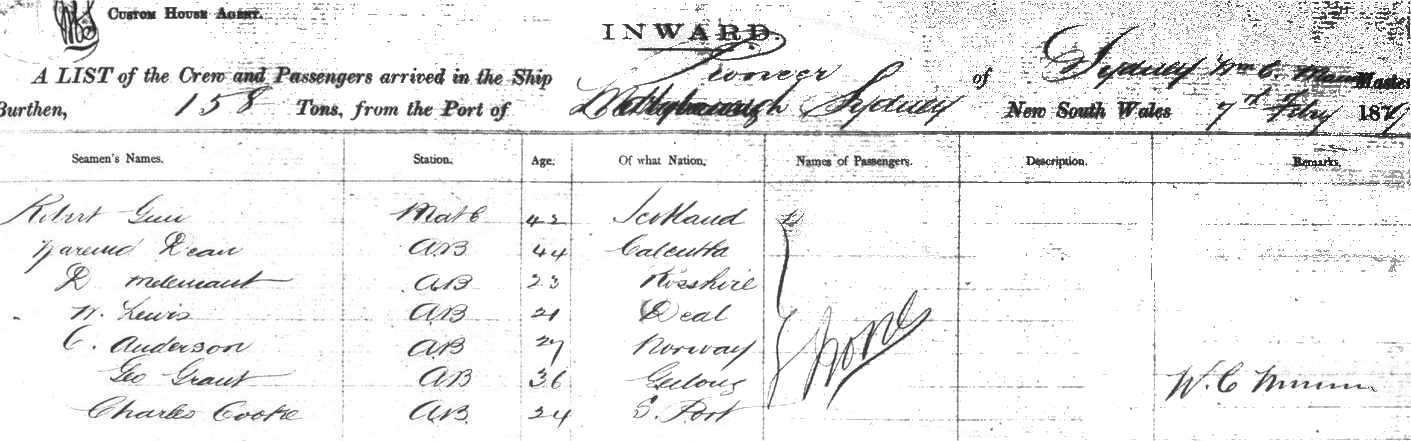 CUSTOM HOUSE AGENT.
INWARD.
A LIST of the Crew and Passengers arrived in the Ship Pioneer of Sydney Wm C. Master
Burthen, 158 Tons, from the Port of Sydney New South Wales 7th Feby 187
Seamen's Names. Station. Age. Of what Nation. Names of Passengers. Description. Remarks.
Robert Gun Mate 42 Scotland
Dean AB 44 Calcutta
D AB 23 Rosshire
W. Lewis AB 21 Deal
C. Anderson AB 27 Norway
Geo Grant AB 36 Geelong
Charles Cooke AB 24 S. Port
None
W. C